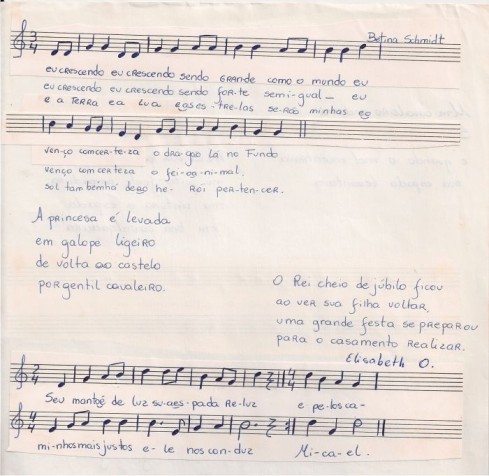 Betina Schmidt
eu crescendo eu crescendo sendo GRande como o mundo eu
eu crescendo eu crescendo sendo for-te sem-i-gual — eu
e a Terra e a Lua
venço com cer-te-za o dra-gão lá no Fundo
venço com cer teza o fei-o a-ni-mal.
sol tam
A princesa é levada
em galope ligeiro
de volta ao castelo
por gentil cavaleiro.
O Rei cheio de júbilo ficou
ao ver sua filha voltar,
uma grande festa se preparou
para o casamento realizar.
Elisabeth O.
Seu manto é de luz su-a es-pada Re-luz e pe-los ca-
mi-nhos mais justos e-le nos con-duz Mi-ca-el.